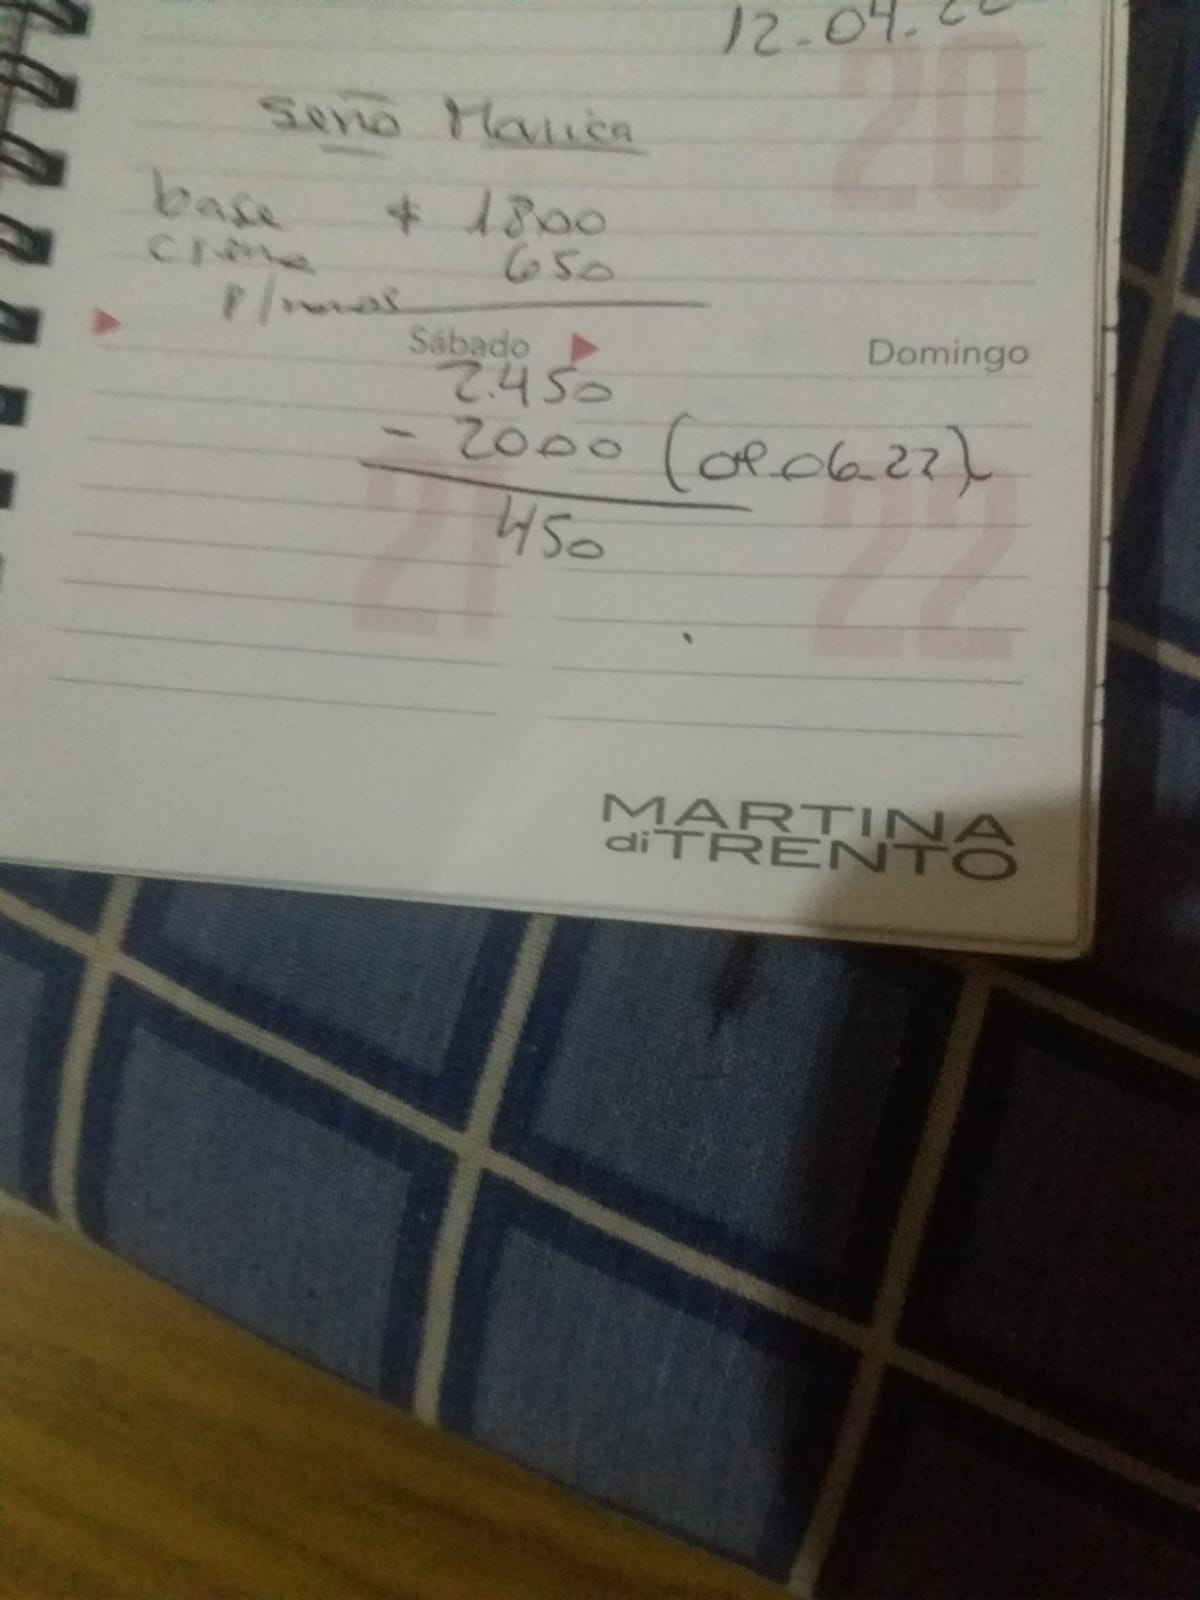 12.04.22
20
Seño Marica
base $ 1800
crema 650
p/manos
Sábado Domingo
2.450
- 2000 (08.06.22)
450
21 22
MARTINA
diTRENTO